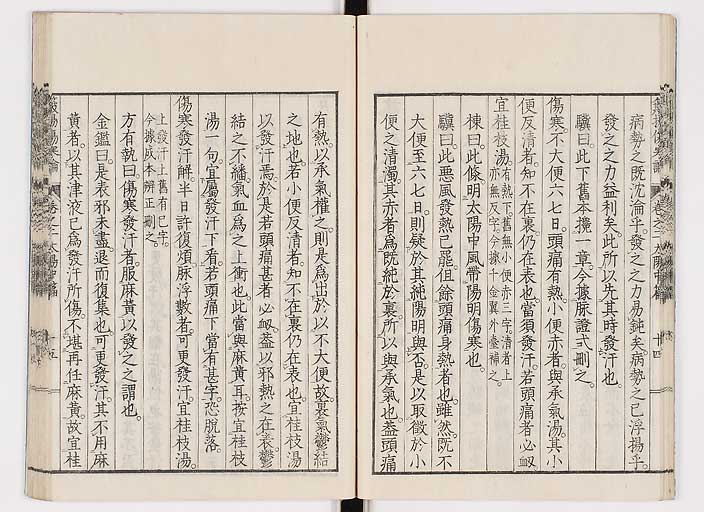 病勢之既沈淪乎發之之力易鈍矣病勢之已浮揚乎
發之之力益利矣此所以先其時發汗也
驥曰此下舊本攙一章今據脈證弍刪之
傷寒不大便六七日頭痛有熱小便赤者與承氣湯其小
便反清者知不在裏仍在表也當須發汗若頭痛者必衂
宜桂枝湯有熱下舊無小便赤三字清者上
亦無反字今據千金翼外臺補之
棟曰此條明太陽中風帶陽明傷寒也
驥曰此惡風發熱已罷但餘頭痛身熱者也雖然既不
大便至六七日則疑於其純陽明與否是以取徵於小
便之清濁其赤者爲既純於裏所以與承氣也蓋頭痛
有熱以承氣權之則是爲出於以不大便故裏氣鬱結
之地也若小便反清者知不在裏仍在表也宜桂枝湯
以發汗焉於是若頭痛甚者必衂蓋以邪熱之在表鬱
結之不繙氣血爲之上衝也此當與麻黃耳按宜桂枝
湯一句宜屬發汗下看若頭痛下當有甚字恐脫落
傷寒發汗觧半日許復煩脉浮數者可更發汗宜桂枝湯
上發汗上舊有已字
今據成本辨正刪之
方有執曰傷寒發汗者服麻黃以發之之謂也
金鑑曰是表邪未盡退而復集也可更發汗其不用麻
黃者以其津液已爲發汗所傷不堪再任麻黃故宜桂